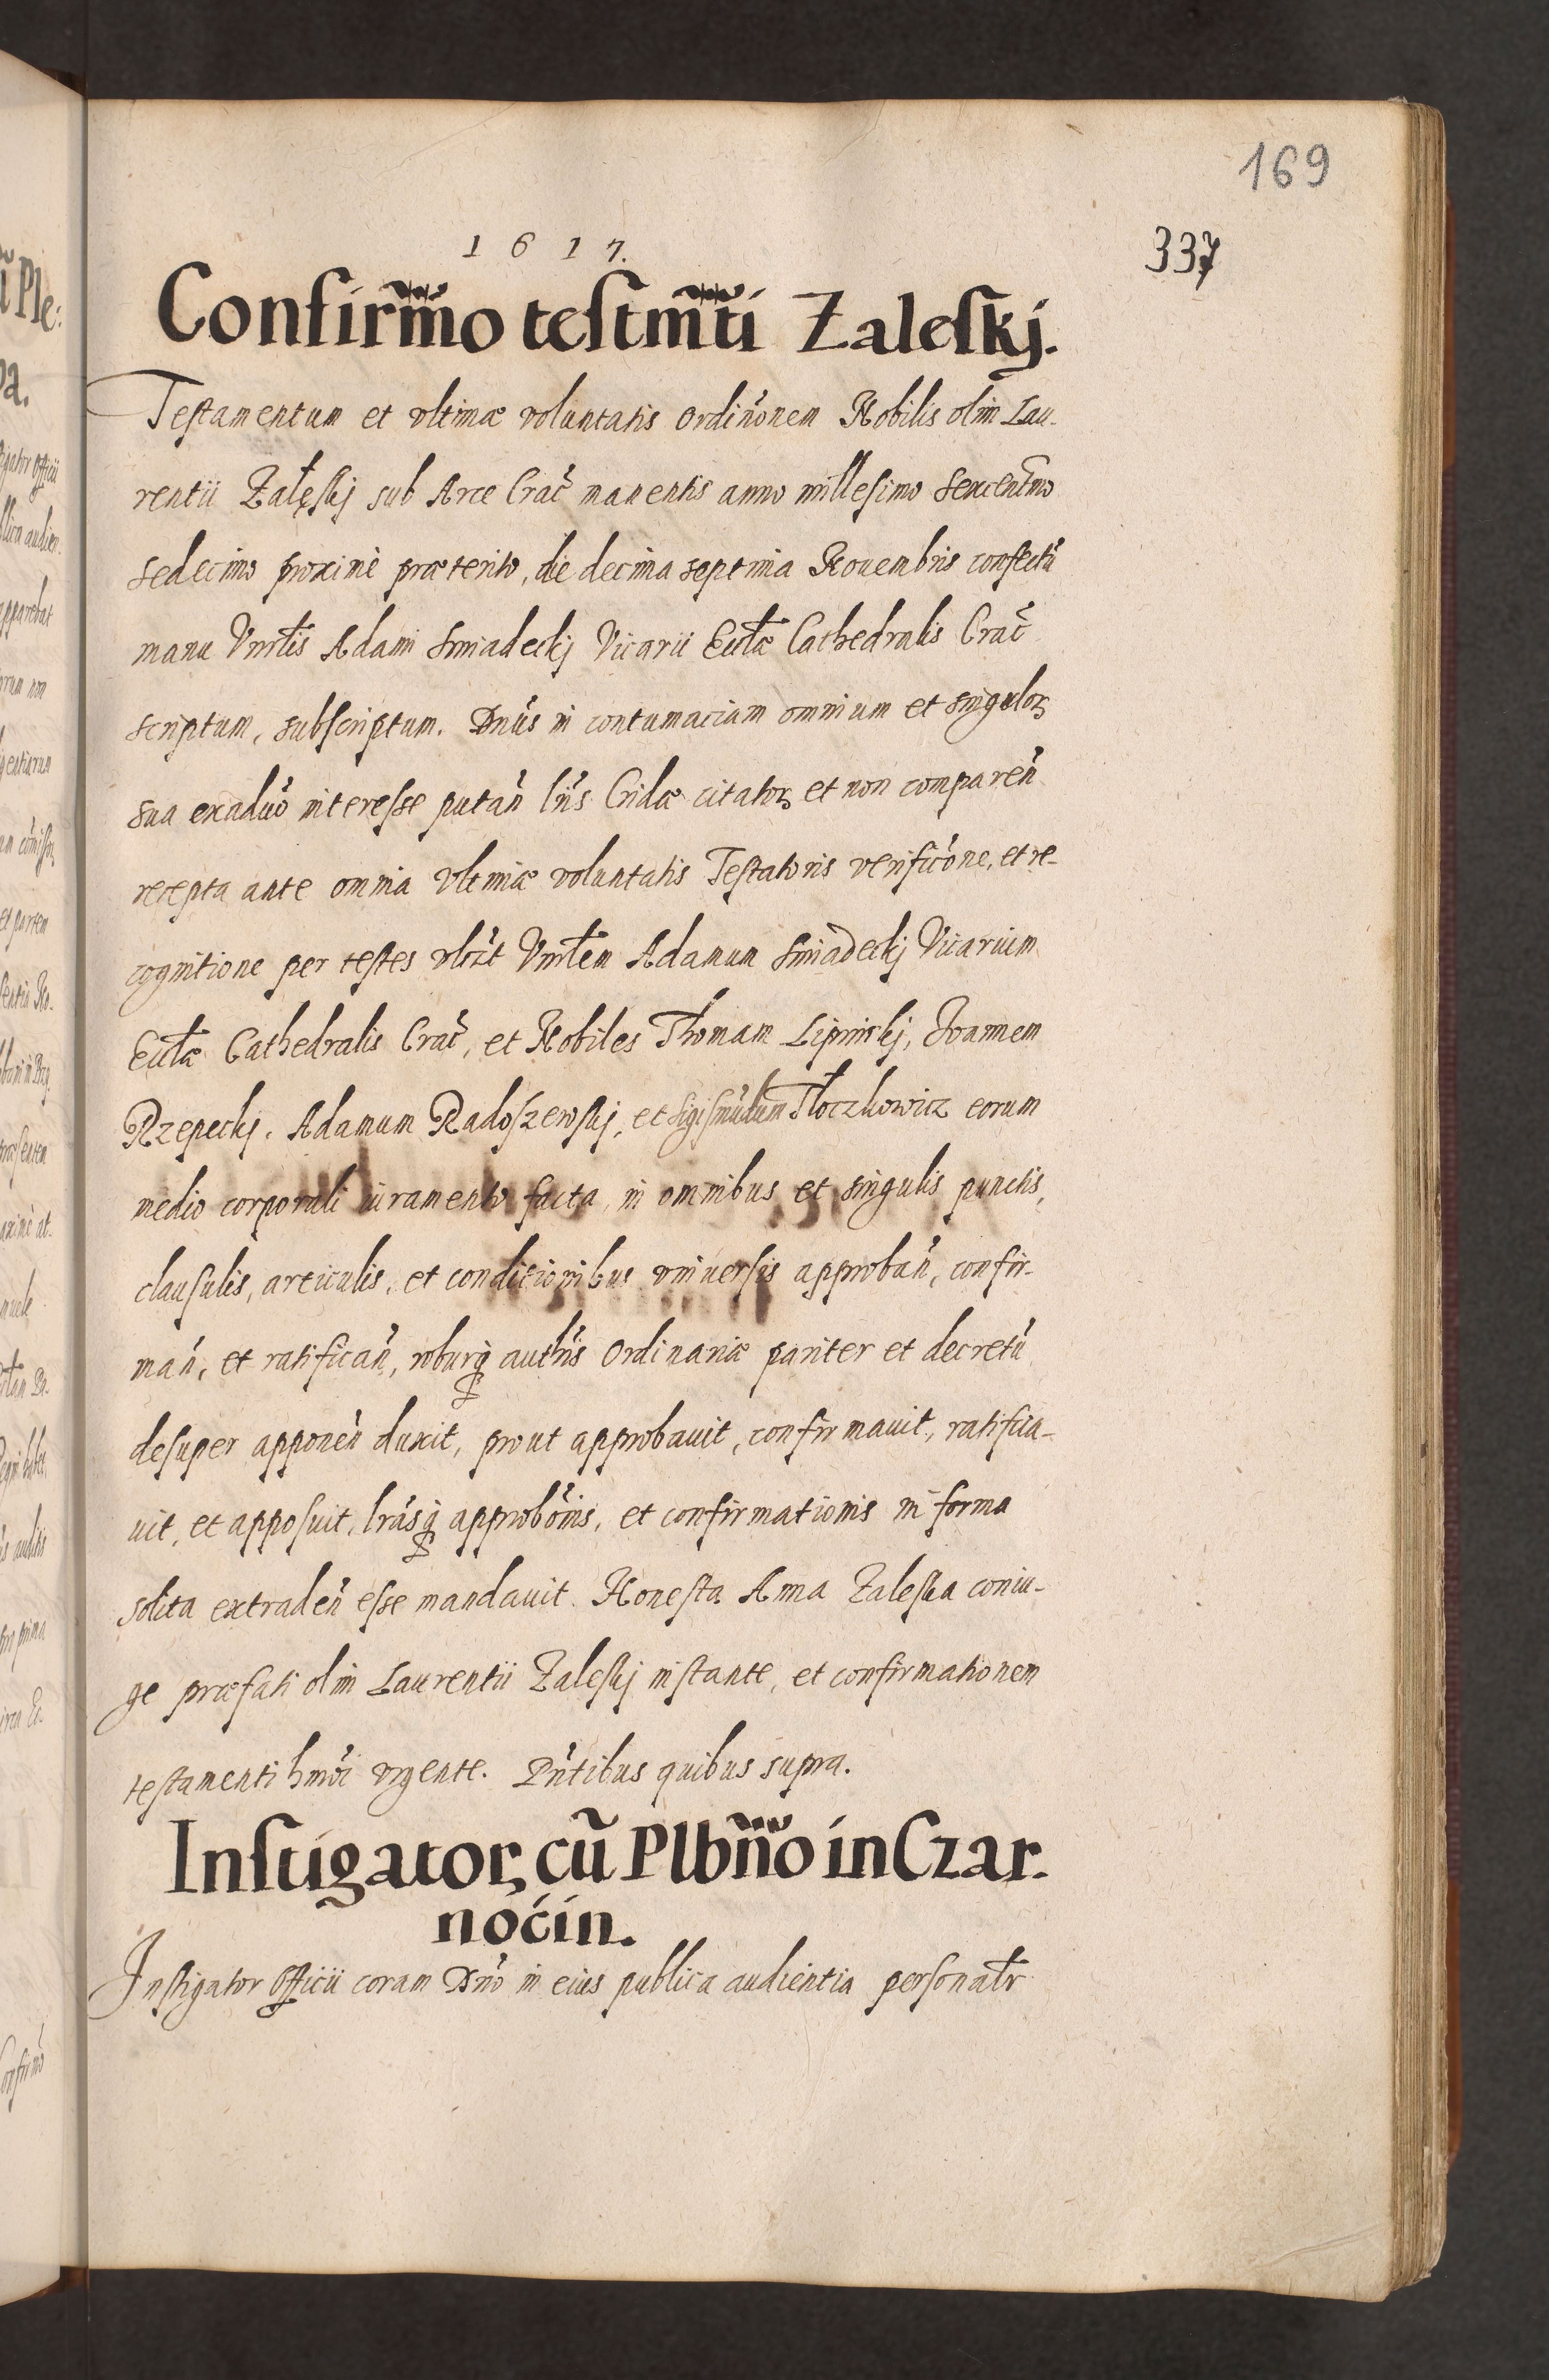 169
337
1617.
Confirm̃o testm̃ti Zaleskj.
Testamentum et vltimæ voluntatis Ordin̄onem Nobilis olim Lau-
rentii Załęskj sub Arce Crac̄ manentis anno millesimo sexcentm̄o
sedecimo proximè præterito, die decima septima Nouembris confectū
manu Vnr̄łis Adami Smiadeckj Vicarii Eccłæ Cathedralis Crac̄
scriptum, subscriptum. Dn̄us in contumaciam omnium et singuloꝝ
sua exaduō interesse putan̄ lr̄is Cridæ citatoꝝ et non comparen̄
recepta ante omnia vltimæ voluntatis Testatoris verific̄one, et re-
cognitione per testes Vnr̄łem Adamum Smiadeckj Vicarium
Eccłæ Cathedralis Crac̄, et Nobiles Thomam Lipinskj, Joannem
Rzepeckj, Adamum Radoszewskj, et Sigismūdum Tłoczkowicz eorum
medio corporali iuramento facta, in omnibus et singulis punctis,
clausulis, articulis, et conditionibus vniuersis approban̄, confir-
man̄, et ratifican̄, roburq̨ authr̄is Ordinariæ pariter et decretū
desuper apponen̄ duxit, prout approbauit, confirmauit, ratifica-
uit, et apposuit, lr̄asq̨ approbōnis, et confirmationis in forma
solita extraden̄ esse mandauit. Honesta Anna Zaleska coniu-
ge præfati olim Laurentii Zaleskj instante, et confirmationem
testamenti hmōi vrgente. Pn̄tibus quibus supra.
Instigator, cū Plbñ̃o in Czar-
nocin.
Instigator Officii coram Dn̄o in eius publica audientia personałr